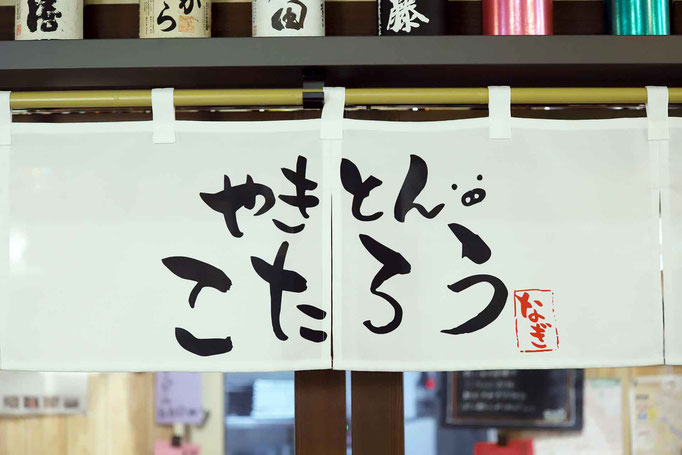 田
藤
やきとん
こたろう
なぎ